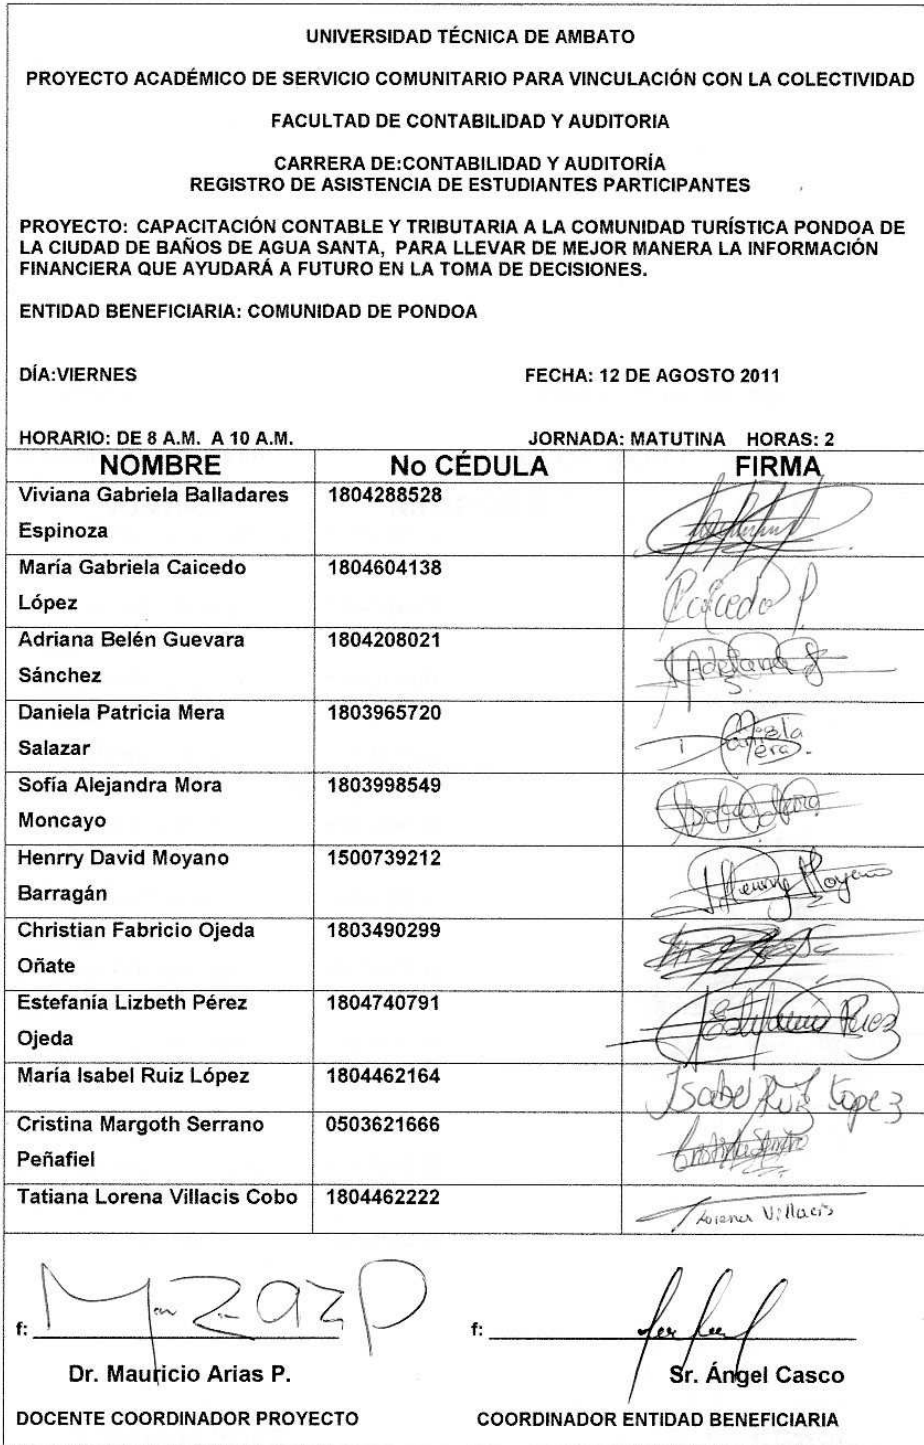 UNIVERSIDAD TÉCNICA DE AMBATO
PROYECTO ACADÉMICO DE SERVICIO COMUNITARIO PARA VINCULACIÓN CON LA COLECTIVIDAD
FACULTAD DE CONTABILIDAD Y AUDITORIA
CARRERA DE:CONTABILIDAD Y AUDITORÍA
REGISTRO DE ASISTENCIA DE ESTUDIANTES PARTICIPANTES
PROYECTO: CAPACITACIÓN CONTABLE Y TRIBUTARIA A LA COMUNIDAD TURÍSTICA PONDOA DE
LA CIUDAD DE BAÑOS DE AGUA SANTA, PARA LLEVAR DE MEJOR MANERA LA INFORMACIÓN
FINANCIERA QUE AYUDARÁ A FUTURO EN LA TOMA DE DECISIONES.
ENTIDAD BENEFICIARIA: COMUNIDAD DE PONDOA
DÍA:VIERNES FECHA: 12 DE AGOSTO 2011
HORARIO: DE 8 A.M. A 10 A.M. JORNADA: MATUTINA HORAS: 2
NOMBRE No CÉDULA FIRMA
Viviana Gabriela Balladares 1804288528
Espinoza
María Gabriela Caicedo 1804604138
López Caicedo P.
Adriana Belén Guevara 1804208021
Sánchez
Daniela Patricia Mera 1803965720
Salazar Daniela Mera
Sofía Alejandra Mora 1803998549
Moncayo
Henrry David Moyano 1500739212
Barragán Henrry Moyano
Christian Fabricio Ojeda 1803490299
Oñate
Estefanía Lizbeth Pérez 1804740791
Ojeda Estefanía Pérez
María Isabel Ruiz López 1804462164 Isabel Ruiz López
Cristina Margoth Serrano 0503621666
Peñafiel
Tatiana Lorena Villacis Cobo 1804462222 Lorena Villacis
f: f:
Dr. Mauricio Arias P. Sr. Ángel Casco
DOCENTE COORDINADOR PROYECTO COORDINADOR ENTIDAD BENEFICIARIA